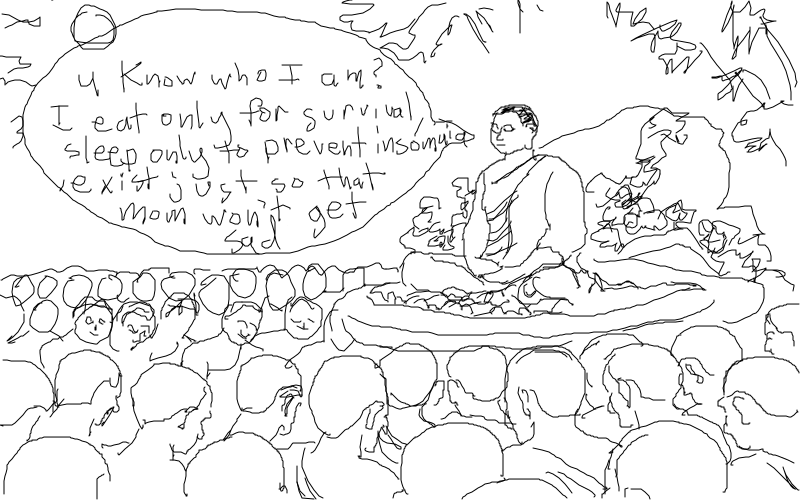 u know who I am?
I eat only for survival,
sleep only to prevent insomnia
,exist just so that
mom won't get
sad